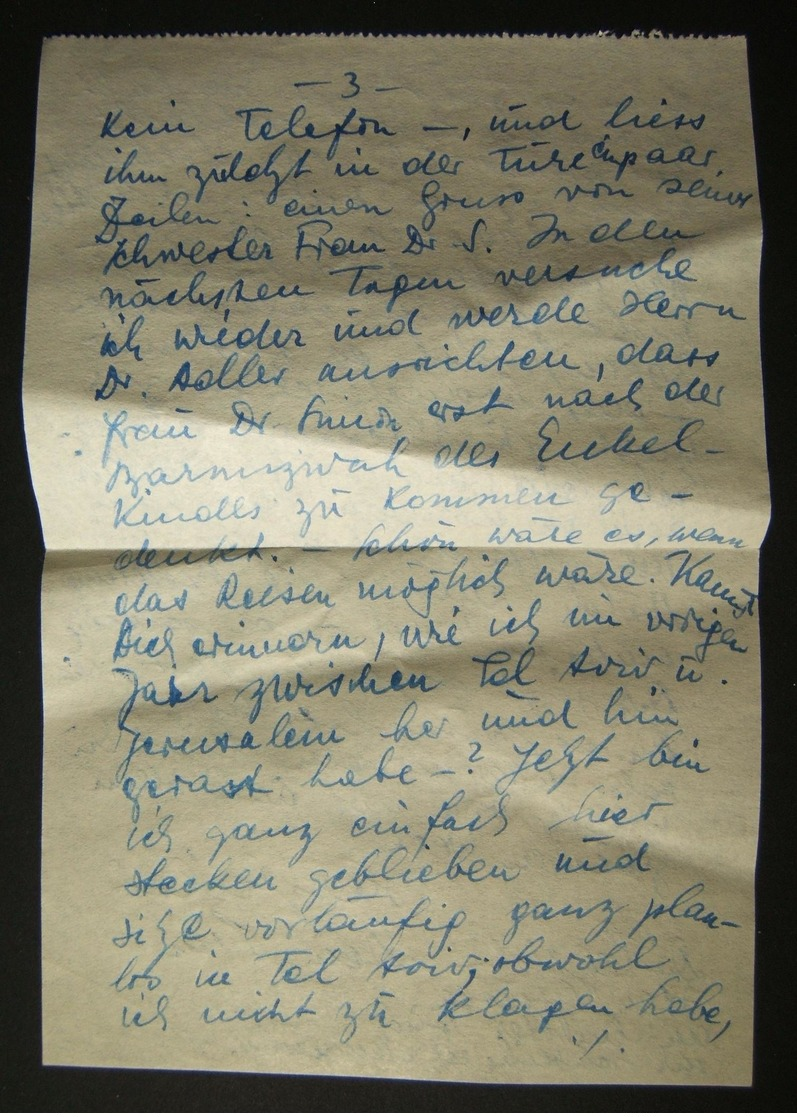 — 3 —
Kein Telefon —, und liess
ihm zuletzt in der Türe einpaar
Zeilen: einen Gruss von seiner
Schwester Frau Dr S. In den
nächsten Tagen versuche
ich wieder und werde Herrn
Dr. Adler ausrichten, dass
Frau Dr Simon erst nach der
Barmizwah des Enkel-
Kindes zu Kommen ge-
denkt. — Schön wäre es, wenn
das Reisen möglich wäre. Kannst
Dich erinnern, wie ich im vorigen
Jahr zwischen Tel Aviv u.
Jerusalem her und hin
gerast habe —? Jetzt bin
ich ganz einfach hier
stecken geblieben und
sitze vorläufig ganz plan-
los in Tel Aviv, obwohl
ich nicht zu klagen habe,